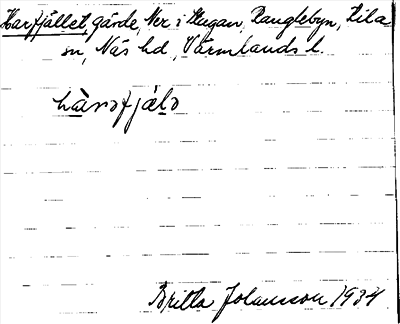 Harfjället, gärde, Ner i Stugan, Ranglebyn, Kila
sn, Näs hd, Värmlands l.
Britta Johansson 1934